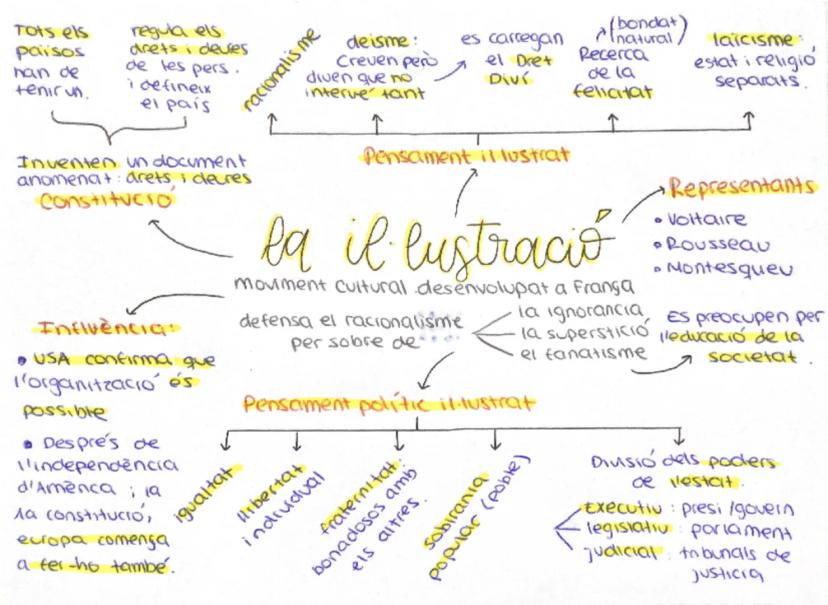 Tots els
països
han de
tenir un.
regula els
drets i deures
de les pers.
i defineix
el país
racionalisme
deisme:
Creuen però
diuen que no
interve tant
es carregan
el Dret
Diví
(bondat
natural)
Recerca
de la
felicitat
laïcisme:
estat i religió
separats.
Pensament il·lustrat
Inventen un document
anomenat: drets i deures
Constitució
Representants
• Voltaire
• Rousseau
• Montesqueu
la il·lustració
moviment cultural desenvolupat a França
defensa el racionalisme
per sobre de
la ignorancia
la superstició
el fanatisme
Es preocupen per
l'educació de la
societat.
Influència:
• USA confirma que
l'organització és
possible
• Després de
l'independència
d'Amèrica i la
1a constitució,
europa comença
a fer-ho també.
Pensament polític il·lustrat
igualtat
llibertat
individual
fraternitat:
bonadosos amb
els altres.
sobirania
popular (poble)
Divisió dels poders
de l'estat.
Executiu: presi/govern
legislatiu: parlament
judicial: tribunals de
justicia